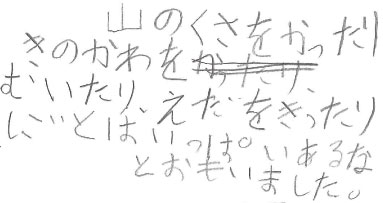 山のくさをかったり
きのかわを
むいたり、えだをきったり
しごとは、いっぱ。いあるな
とおもいました。